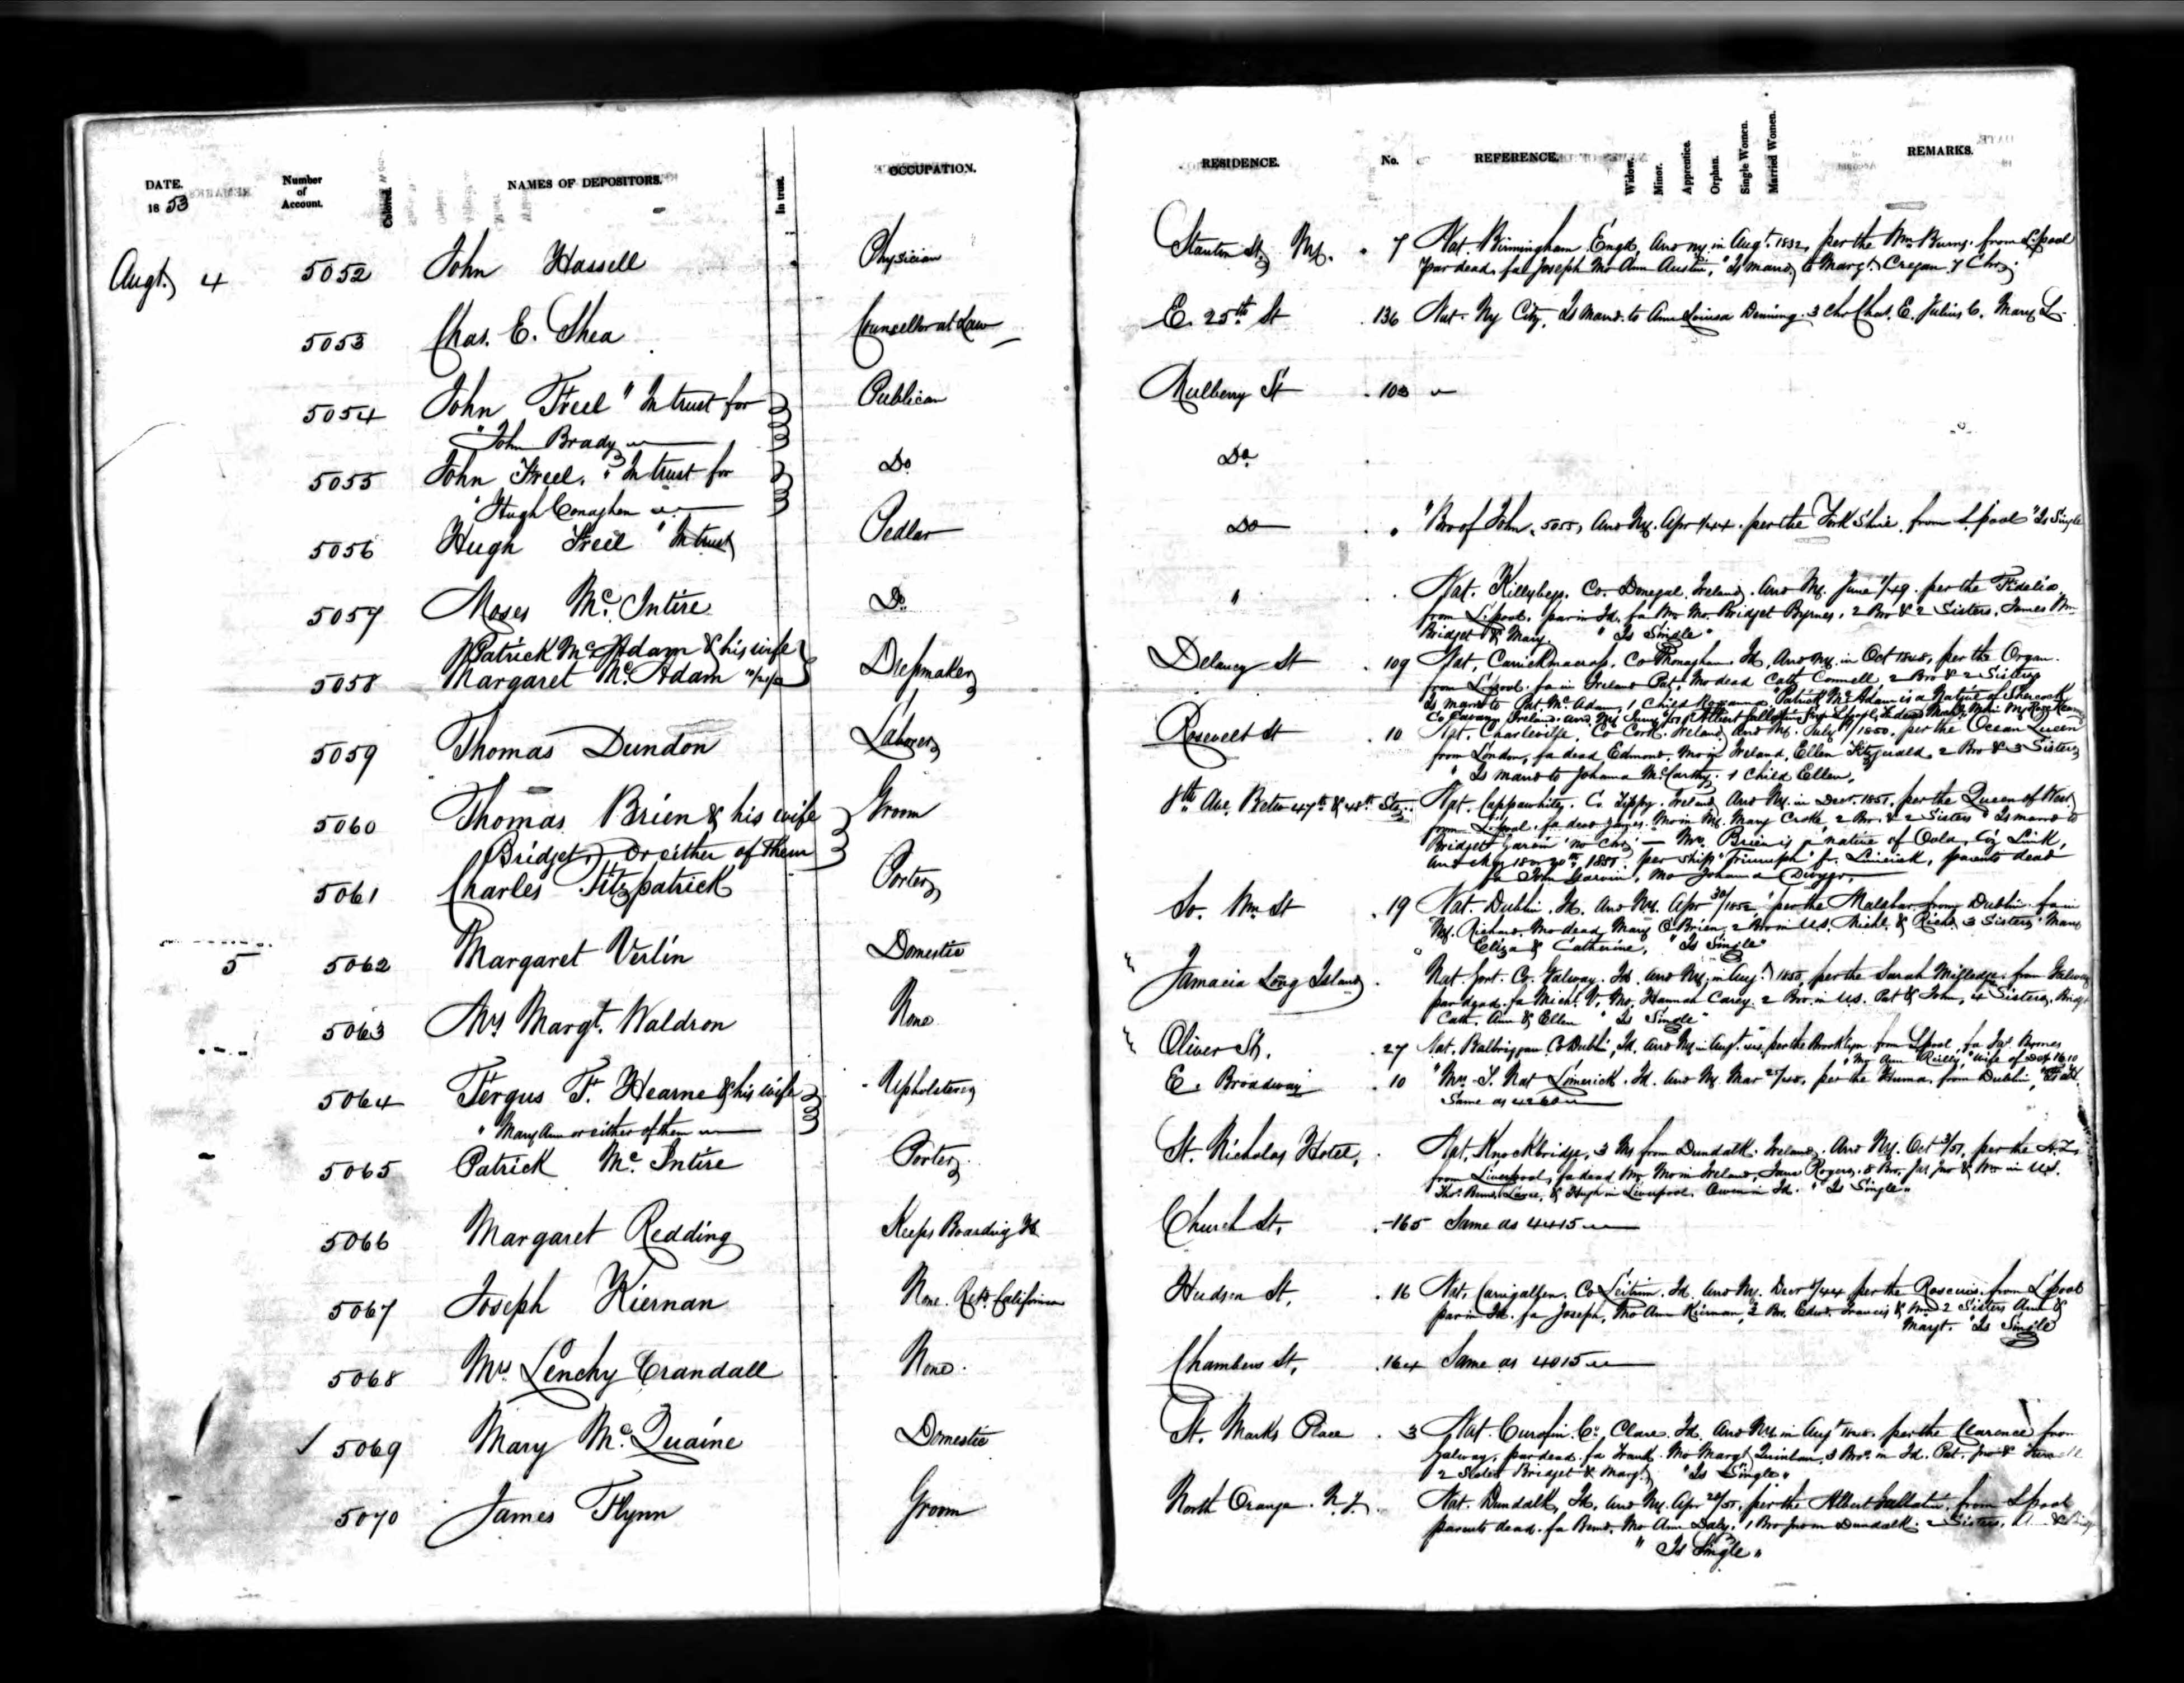 DATE.
1853
Number
of
Account.
Colored.
NAMES OF DEPOSITORS.
In trust.
OCCUPATION.
RESIDENCE.
No.
REFERENCE.
Widow.
Minor.
Apprentice.
Orphan.
Single Women.
Married Women.
REMARKS.
Augt. 4 5052 John Hassell Physician Stanton St. NY. 7 Nat. Birmingham Engd, Arrd NY in Augt. 1832, per the Wm Burns from L'pool
par dead, fa Joseph Mo Ann Austin, "Is marrd to Margt. Cregan 7 Chn
5053 Chas. E. Shea Counsellor at Law E. 25th St 136 Nat. NY City, Is marrd. to Ann Louisa Denning 3 Chn Chas. E. Julius C. Mary L.
5054 John Freel "In trust for Publican Mulberry St 103
"John Brady
5055 John Freel, "In trust for Do Do
"Hugh Conaghen
5056 Hugh Freel "In trust Pedlar Do "Bro of John, 5055, Arrd NY. Apr /44 per the York Shire from L'pool "Is Single
5057 Moses McIntire Do " Nat. Killybegs, Co. Donegal, Ireland, Arrd NY. June /49 per the Fidelia
from L'pool, par in Id. fa Wm Mo. Bridget Byrnes, 2 Bro & 2 Sisters, James Wm
Bridget & Mary, "Is Single"
Patrick McAdam & his wife
5058 Margaret McAdam Delancy St 109 Nat, Carrickmacross, Co Monaghan Id, Arrd NY. in Oct 1848, per the Organ
from L'pool. fa in Ireland Pat, Mo dead Cath Connell, 2 Bro & 2 Sisters
Is marrd to Pat. McAdam, 1 Child Patrick McAdam is a Native of Shercock
Co Cavan, Ireland. Arrd NY
5059 Thomas Dundon Laborer Rosevelt St 10 Nat. Charleville, Co Cork, Ireland, Arrd NY. July 1850, per the Ocean Queen
from London, fa dead Edmond, Mo in Ireland, Ellen Fitzgerald, 2 Bro & 3 Sisters
"Is marrd to Johana McCarthy. 1 Child Ellen,
5060 Thomas Brien & his wife Groom 8th Ave. Betw 47th & 48th Sts Nat. Cappawhite, Co. Tipp. Ireland, Arrd NY. in Decr. 1851, per the Queen of West
from L'pool. fa dead James. Mo in NY. Mary Croke 2 Bro. & 2 Sisters "Is marrd to
Bridget Garvin no Chn — Mrs. Brien is a native of Oola, Co Limk,
per Ship "Triumph" fr. Limerick, parents dead
fa John Garvin, Mo Johanna Dwyer,
Bridget, or either of them
5061 Charles Fitzpatrick Porter So. Wm St 19 Nat. Dublin, Id. Arrd NY. Apr 30/1852 per the Malabar from Dublin fa in
NY. Richard. Mo dead Mary O'Brien, 2 Bro in U.S. Michl. & Richd. 3 Sisters Mary
Eliza & Catherine, "Is Single"
5 5062 Margaret Verlin Domestic Jamacia Long Island Nat. Gort. Co. Galway. Id. Arrd NY. in Aug. 1850, per the Sarah Milledge from Galway
par dead. fa Mich. V. Mo. Hannah Carey. 2 Bro. in U.S. Pat & John, 4 Sisters, Bridgt
Cath. Ann & Ellen "Is Single"
5063 Mrs Margt. Waldron None Oliver St. 27 Nat. Balbriggan Co Dublin, Id. Arrd NY in Augt. per the Brooklyn from L'pool
5064 Fergus F. Hearne & his wife Upholsterer E. Broadway 10 Nat Limerick. Id. Arrd NY Mar per the Huma, from Dublin
Same as 4260
"Mary Ann or either of them
5065 Patrick McIntire Porter St. Nicholas Hotel, Nat. Knockbridge, 3 Ms from Dundalk. Ireland, Arrd NY. Oct 3/51, per the
from Liverpool, fa dead Wm Mo in Ireland, Jane Rogers. 8 Bro, Jas Jno & Wm in U.S.
Thos. Bernd. & Hugh in Liverpool. Owen in Id. "Is Single"
5066 Margaret Redding Keeps Boarding H Church St. 165 Same as 4415
5067 Joseph Kiernan None. Retd. California Hudson St. 16 Nat. Carrigallen. Co Leitrim. Id. Arrd NY. Decr /44 per the Roscius from L'pool
par in Id. fa Joseph, Mo Ann Kiernan, 3 Bro. Edwd. Francis & Wm 2 Sisters Ann &
Margt. "Is Single
5068 Mrs. Lenchy Crandall None. Chambers St. 164 Same as 4015
5069 Mary McQuaine Domestic St. Marks Place 3 Nat. Curofin. Co. Clare. Id. Arrd NY. in Augt 1848. per the Clarence from
Galway, par dead. fa Frank. Mo Margt Quinlan, 3 Bro. in Id. Pat. Jno &
2 Sisters Bridget & Margt. "Is Single"
5070 James Flynn Groom North Orange. N.J. Nat. Dundalk, Id. Arrd NY. Apr 20/51, per the Albert Gallatin from L'pool
parents dead. fa Bernd. Mo Ann Daly. 1 Bro Jno in Dundalk. 2 Sisters,
"Is Single"